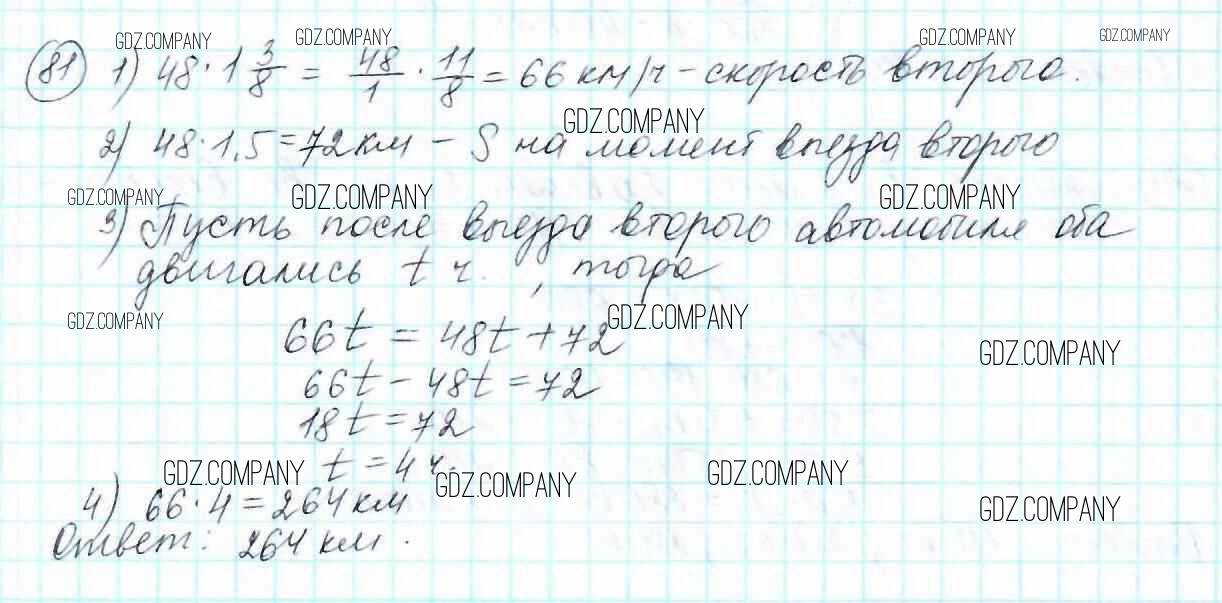 GDZ.COMPANY GDZ.COMPANY GDZ.COMPANY GDZ.COMPANY
81 1) 48 · 1 3/8 = 48/1 · 11/8 = 66 км/ч – скорость второго.
GDZ.COMPANY
2) 48 · 1,5 = 72 км – S на момент выезда второго
GDZ.COMPANY GDZ.COMPANY GDZ.COMPANY
3) Пусть после выезда второго автомобиля оба
двигались t ч. , тогда
GDZ.COMPANY GDZ.COMPANY
66t = 48t + 72
GDZ.COMPANY
66t – 48t = 72
18t = 72
t = 4 ч.
GDZ.COMPANY GDZ.COMPANY GDZ.COMPANY
4) 66 · 4 = 264 км
GDZ.COMPANY
Ответ: 264 км.